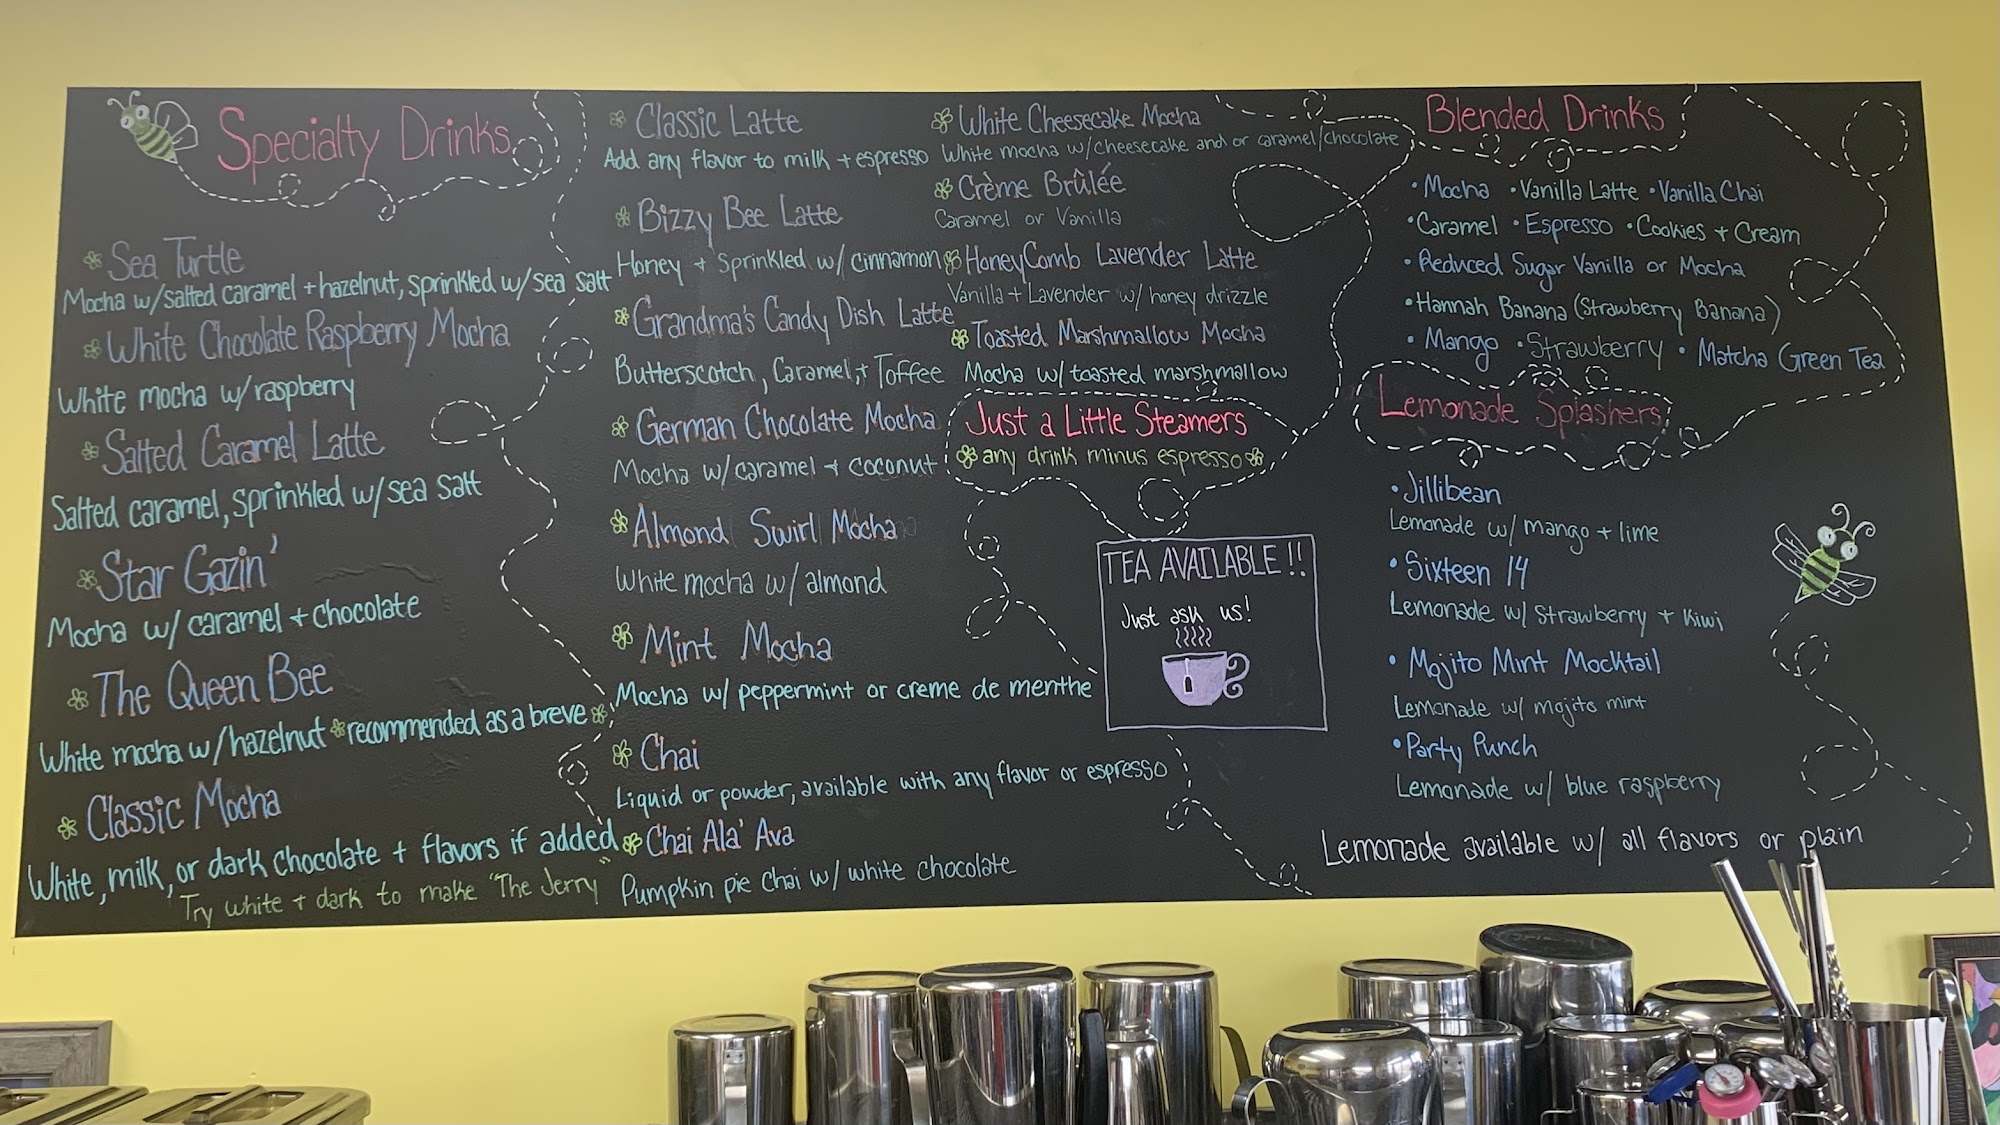 Specialty Drinks
Sea Turtle
Mocha w/salted caramel + hazelnut, sprinkled w/sea salt
White Chocolate Raspberry Mocha
White mocha w/raspberry
Salted Caramel Latte
Salted caramel, sprinkled w/sea salt
Star Gazin'
Mocha w/ caramel + chocolate
The Queen Bee
White mocha w/hazelnut recommended as a breve
Classic Mocha
White, milk, or dark chocolate + flavors if added
Try white + dark to make "The Jerry"
Classic Latte
Add any flavor to milk + espresso
Bizzy Bee Latte
Honey + Sprinkled w/ cinnamon
Grandma's Candy Dish Latte
Butterscotch, Caramel, + Toffee
German Chocolate Mocha
Mocha w/caramel + coconut
Almond Swirl Mocha
White mocha w/ almond
Mint Mocha
Mocha w/ peppermint or creme de menthe
Chai
Liquid or powder, available with any flavor or espresso
Chai Ala' Ava
Pumpkin pie chai w/ white chocolate
White Cheesecake Mocha
White mocha w/cheesecake and or caramel/chocolate
Crème Brûlée
Caramel or Vanilla
HoneyComb Lavender Latte
Vanilla + Lavender w/ honey drizzle
Toasted Marshmallow Mocha
Mocha w/ toasted marshmallow
Just a Little Steamers
any drink minus espresso
TEA AVAILABLE!!
Just ask us!
Blended Drinks
• Mocha • Vanilla Latte • Vanilla Chai
• Caramel • Espresso • Cookies + Cream
• Reduced Sugar Vanilla or Mocha
• Hannah Banana (Strawberry Banana)
• Mango • Strawberry • Matcha Green Tea
Lemonade Splashers
• Jillibean
Lemonade w/ mango + lime
• Sixteen 14
Lemonade w/ Strawberry + Kiwi
• Mojito Mint Mocktail
Lemonade w/ mojito mint
• Party Punch
Lemonade w/ blue raspberry
Lemonade available w/ all flavors or plain